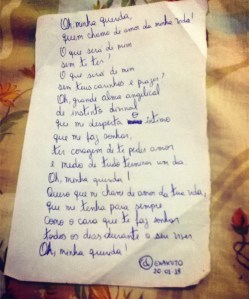 Oh, minha querida,
quem chamo de amor da minha vida!
O que será de mim
sem ti ter!
O que será de mim
sem teus carinhos e prazer!
Oh, grande alma angelical
de instinto divinal!
que me desperta o íntimo
que me faz sonhar,
ter coragem de te pedir amor
e medo de tudo terminar um dia.
Oh, minha querida!
Quero que me chame de amor da tua vida,
que me tenha para sempre
como o cara que te faz sonhar
todos os dias durante o seu
Oh, minha querida!